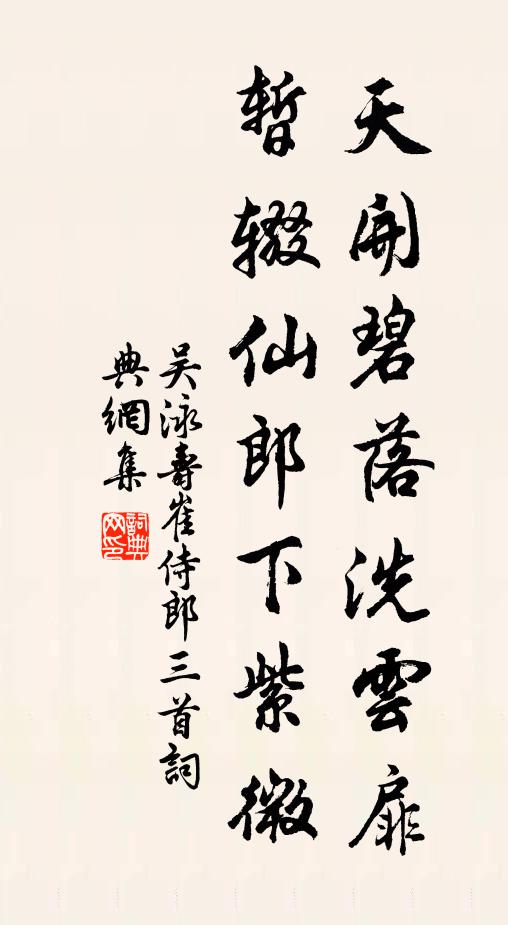 天開碧落洗雲扉
暫輟仙郎下紫微
吴泳壽崔侍郎三首詞
典網集
詞典
网印